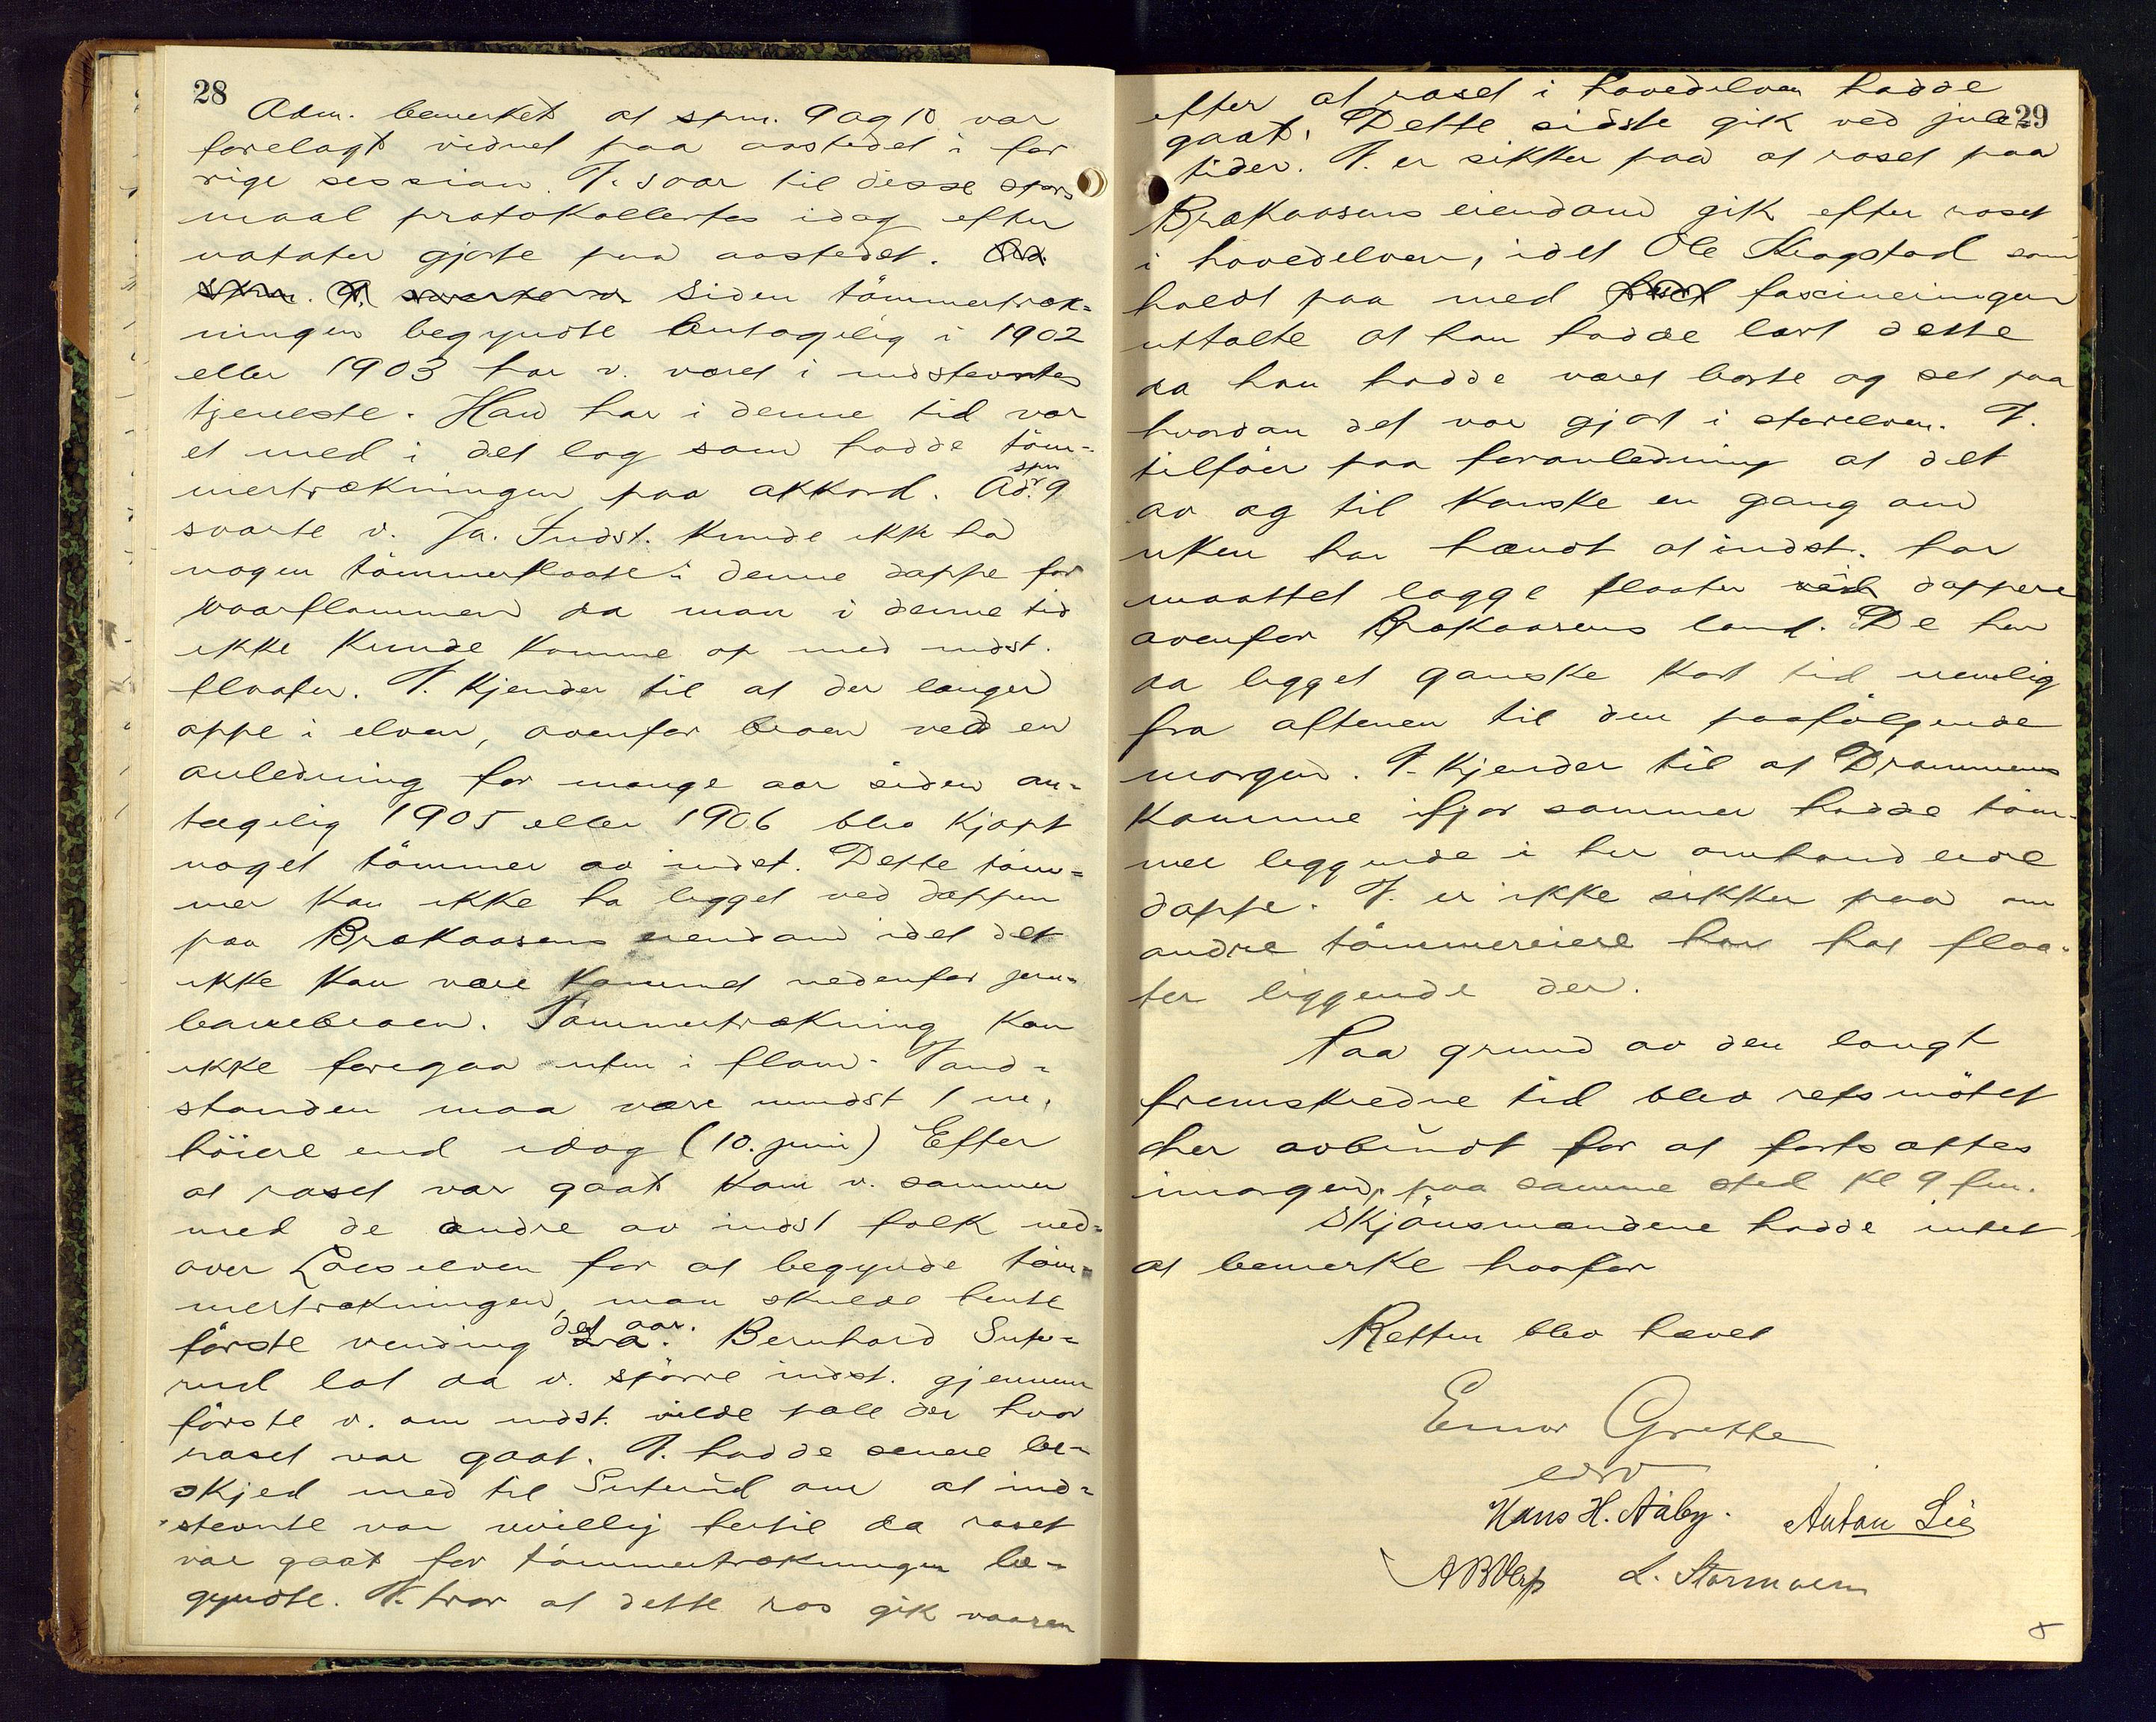 28
Adm. bemerket at spm. 9 og 10 var
forelagt vidnet paa aastedet i for
rige session. V. svar til disse spørs
maal protokollertes idag efter
notater gjorte paa aastedet.
Siden tömmertræk-
ningen begyndte antagelig i 1902
eller 1903 har v. været i indstevntes
tjeneste. Han har i denne tid vær
et med i det lag som hadde töm-
mertrækningen paa akkord. Ad. spm 9
svarte v. Ja. Indst. kunde ikke ha
nogen tömmerflaate i denne dappe för
vaarflommen da man i denne tid
ikke kunde komme op med indst.
flaater. V. kjender til at der længer
oppe i elven, ovenfor broen ved en
anledning for mange aar siden an-
tagelig 1905 eller 1906 blev kjøpt
noget tömmer av indst. Dette töm-
mer kan ikke ha ligget ved dappen
paa Brækaasens eiendom idet det
ikke kan være kommet nedenfor jern-
banebroen. Tömmertrækning kan
ikke foregaa uten i flom. Vand-
standen maa være mindst 1 m.
höiere end idag (10. juni) Efter
at raset var gaat kom v. sammen
med de andre av indst folk ned-
over Loeselven for at begynde töm-
mertrækningen, man skulde hente
förste vending det aar. Bernhard Sute-
rud lot da v. spörre indst. gjennem
förste v. om indst. vilde pæle der hvor
raset var gaat. V. hadde senere be-
skjed med til Suterud om at ind-
stevnte var uvillig hertil da raset
var gaat før tömmertrækningen be-
gyndte. V. tror at dette ras gik vaaren
29
efter at raset i hovedelven hadde
gaat. Dette sidste gik ved jule-
tider. V. er sikker paa at raset paa
Brækaasens eiendom gik efter raset
i hovedelven, idet Ole Krogstad som
holdt paa med fascineringen
uttalte at han hadde lært dette
da han hadde været borte og set paa
hvordan det var gjort i storelven. V.
tilföier paa foranledning at det
av og til kanske en gang om
uken har hændt at indst. har
maattet lægge flaater ved dappene
ovenfor Brækaasens land. De har
da ligget ganske kort tid nemlig
fra aftenen til den paafölgende
morgen. V. kjender til at Drammens
kommune ifjor sommer hadde töm-
mer liggende i her omhandlede
dappe. V. er ikke sikker paa om
andre tömmereiere har hat flaa-
ter liggende der.
Paa grund av den langt
fremskredne tid blev retsmötet
her avbrudt for at fortsættes
imorgen paa samme sted kl 9 fm.
Skjönsmændene hadde intet
at bemerke hvorfor
Retten blev hævet
Einar Grette
edsv
Hans H. Aaby. Anton Lie
L. Stormoen